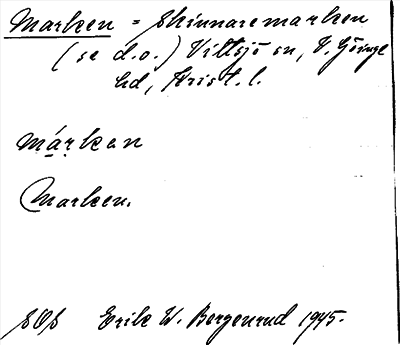 Marken = Skinnaremarken
(se d.o.) Vittsjö sn, V. Göinge
hd, Krist. l.
márkan
Marken.
SOS Erik W. Bergenrud 1945.